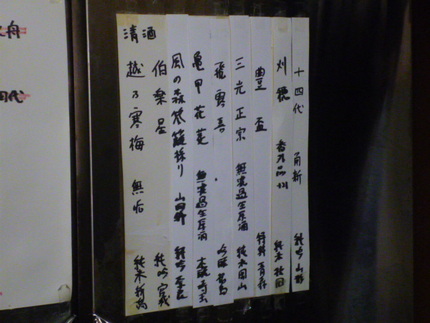 十四代 角新 純吟 山形
刈穂 純米 秋田
豊盃 特純 青森
三光正宗 無濾過生原酒 純米 岡山
飛露喜 吟醸 福島
亀甲花菱 無濾過生原酒 本醸 埼玉
風の森 笊籬採り 山田錦 純吟 奈良
伯楽星 純吟 宮城
清酒
越乃寒梅 無垢 純米 新潟